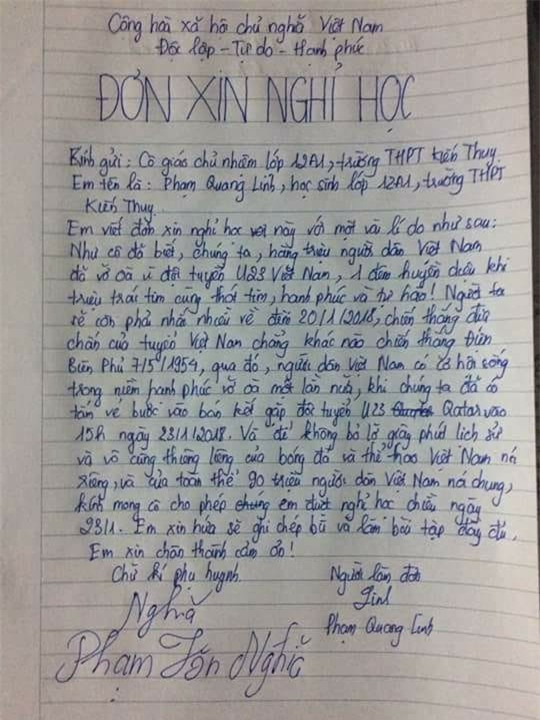 Cộng hòa xã hội chủ nghĩa Việt Nam
Độc lập - Tự do - Hạnh phúc
ĐƠN XIN NGHỈ HỌC
Kính gửi: Cô giáo chủ nhiệm lớp 12A1, trường THPT Kiến Thụy
Em tên là: Phạm Quang Linh, học sinh lớp 12A1, trường THPT
Kiến Thụy
Em viết đơn xin nghỉ học này với một vài lí do như sau:
Như cô đã biết, chúng ta, hàng triệu người dân Việt Nam
đã vỡ òa vì đội tuyển U23 Việt Nam, 1 đêm huyền diệu khi
triệu trái tim cùng thót tim, hạnh phúc và tự hào! Người ta
sẽ còn phải nhắc nhiều về đêm 20/1/2018, chiến thắng đứa
chân của tuyển Việt Nam chẳng khác nào chiến thắng Điện
Biên Phủ 7/5/1954, qua đó, người dân Việt Nam có cơ hội sống
trong niềm hạnh phúc vỡ òa một lần nữa, khi chúng ta đã có
tấm vé bước vào bán kết gặp đội tuyển U23 Qatar vào
15h ngày 23/1/2018. Và để không bỏ lỡ giây phút lịch sử
và vô cùng thiêng liêng của bóng đá và thể thao Việt Nam nói
riêng, và của toàn thể 90 triệu người dân Việt Nam nói chung,
kính mong cô cho phép em được nghỉ học chiều ngày
23/1. Em xin hứa sẽ ghi chép bù và làm bài tập đầy đủ.
Em xin chân thành cảm ơn!
Chữ kí phụ huynh
Người làm đơn
Nghĩa
Linh
Phạm Văn Nghĩa
Phạm Quang Linh